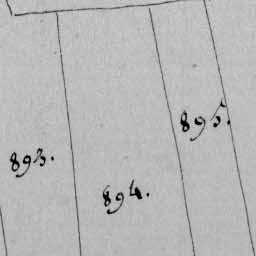 893.
894.
895.